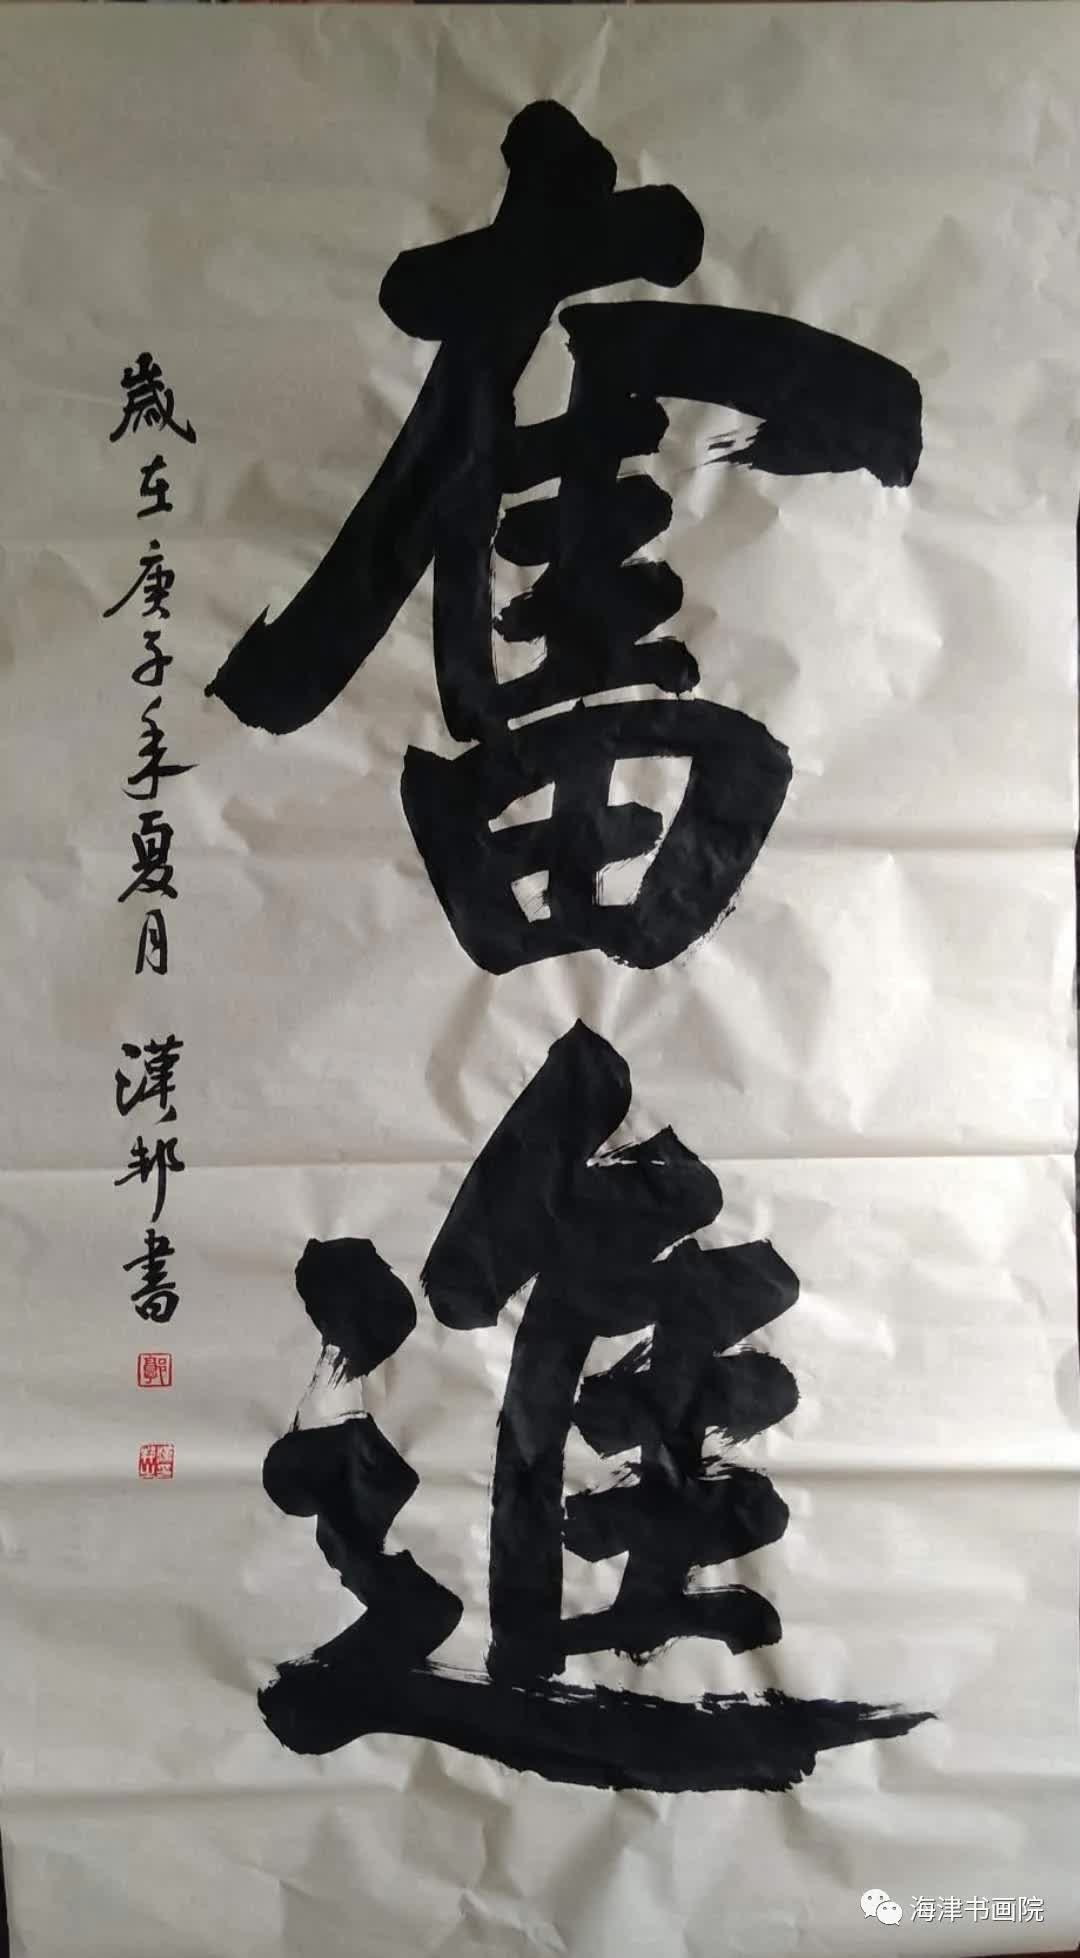 奮進
歲在庚子年夏月 漢邦書
海津书画院